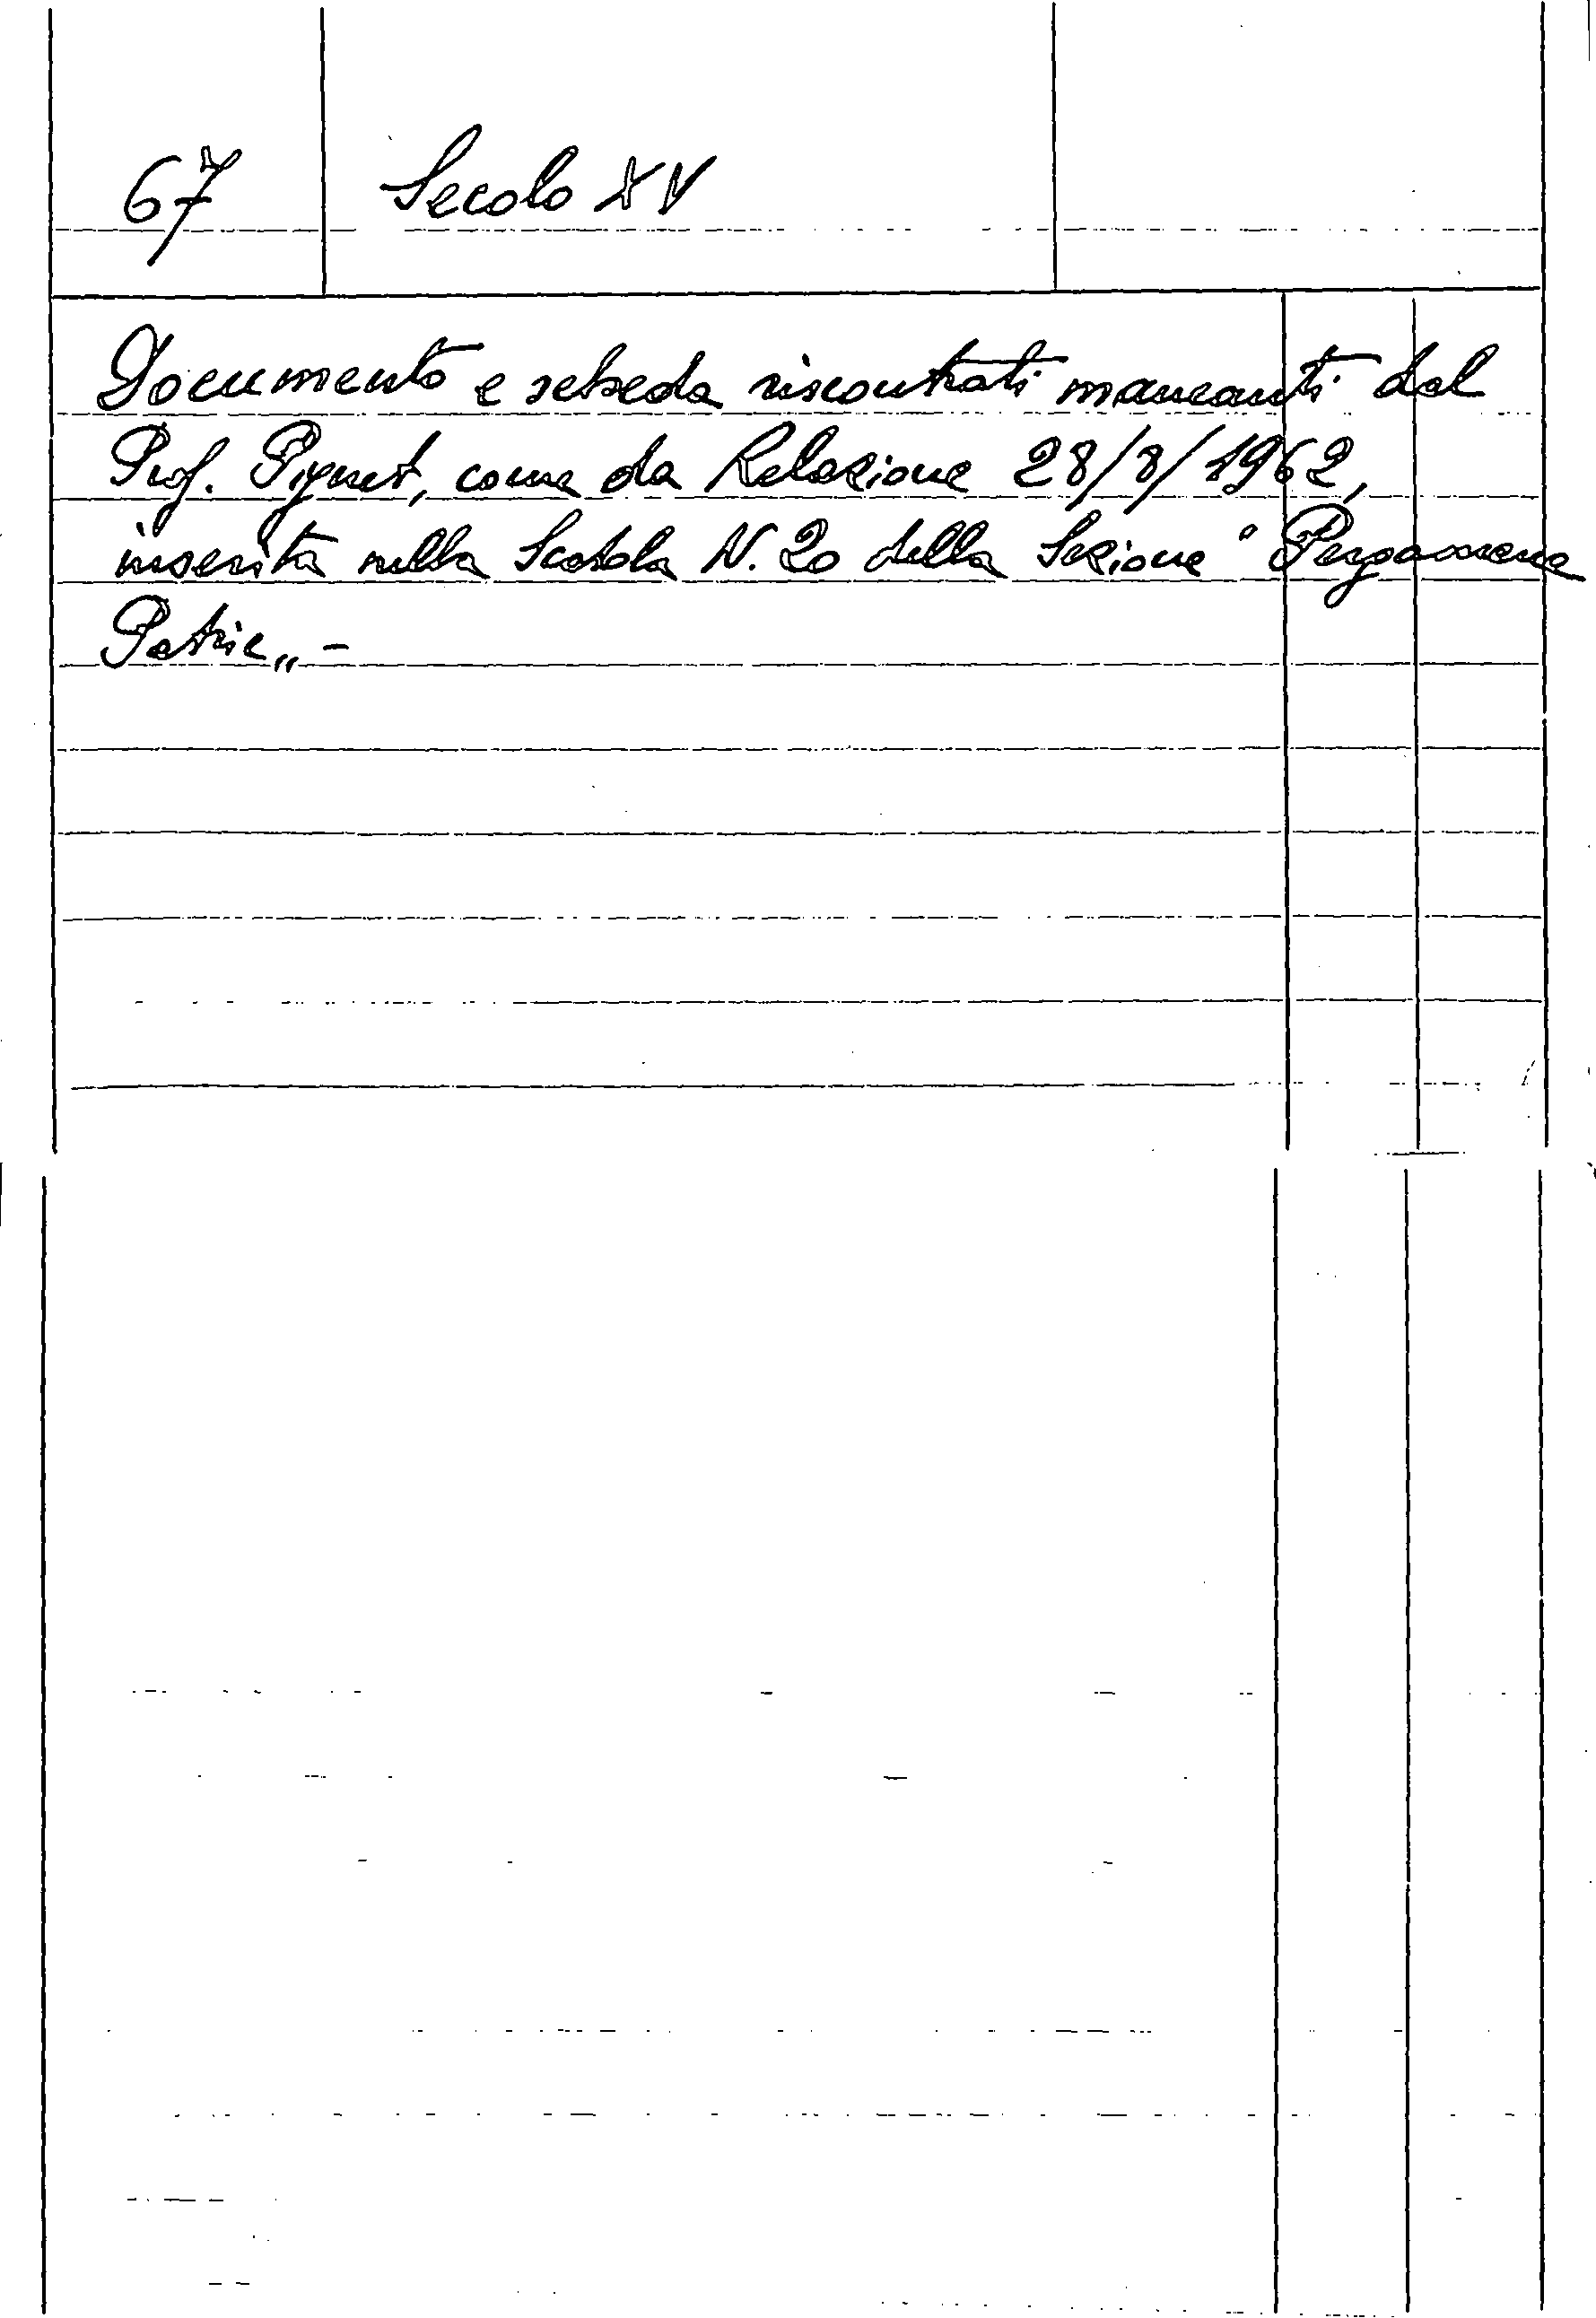 67 Secolo XV
Documento e scheda riscontrati mancanti dal
Prof. Pignet, come da Relazione 28/8/1962,
inserita nella Scatola N. 20 della Sezione "Pergamene
Patrie„ -